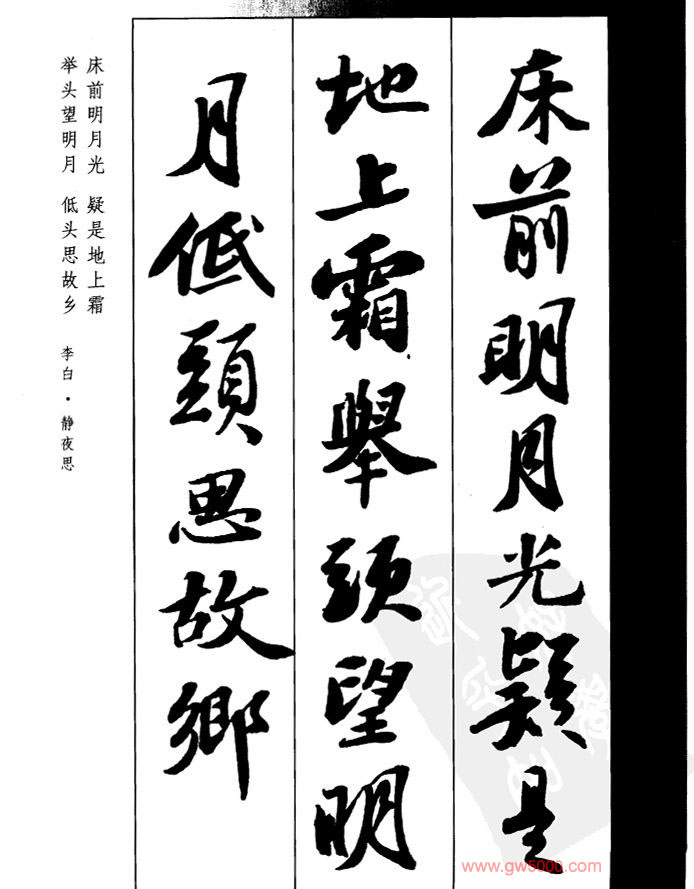 床前明月光疑是
地上霜舉頭望明
月低頭思故鄉
床前明月光 疑是地上霜
举头望明月 低头思故乡 李白·静夜思
www.gw5000.com